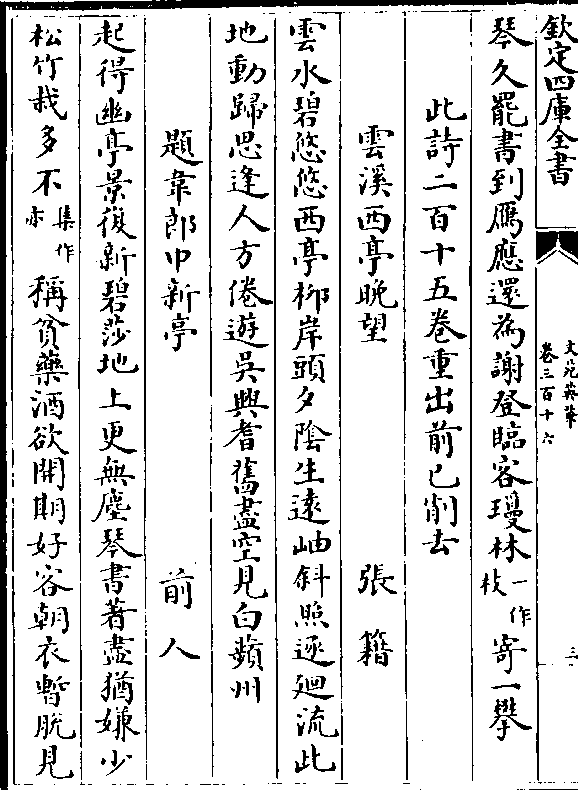 欽定四庫全書
文苑英華
卷三百十六
三
琴久罷書到鴈應還為謝登臨客瓊林一作枝寄一攀
此詩二百十五卷重出前已削去
雲溪西亭晚望 張籍
雲水碧悠悠西亭柳岸頭夕陰生遠岫斜照逐廻流此
地動歸思逢人方倦遊吳興耆舊盡空見白蘋州
題韋郎中新亭 前人
起得幽亭景復新碧莎地上更無塵琴書著盡猶嫌少
松竹栽多不集作亦稱貧藥酒欲開期好客朝衣暫脫見